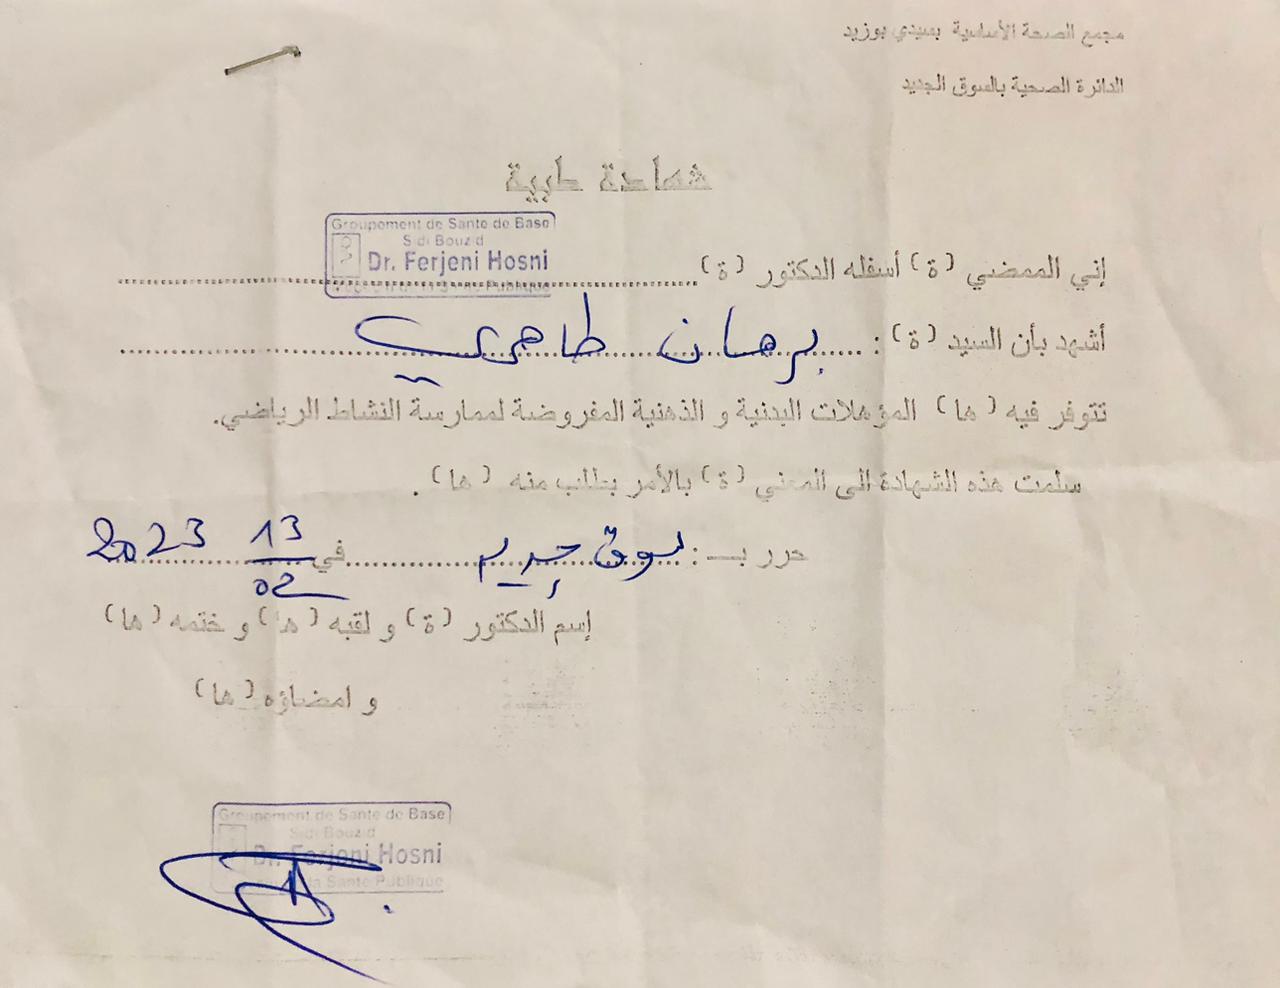 مجمع الصحة الأساسية بسيدي بوزيد
الدائرة الصحية بالسوق الجديد
شهادة طبية
Groupement de Sante de Base
Sidi Bouzid
Dr. Ferjeni Hosni
Sante Publique
إني الممضي (ة) أسفله الدكتور (ة)
أشهد بأن السيد (ة) : برهان طاهري
تتوفر فيه (ها) المؤهلات البدنية و الذهنية المفروضة لممارسة النشاط الرياضي.
سلمت هذه الشهادة الى المعني (ة) بالأمر بطلب منه (ها) .
حرر بـ : سوق جديد في 13/02 2023
إسم الدكتور (ة) و لقبه (ها) و ختمه (ها)
و امضاؤه (ها)
Groupement de Sante de Base
Sidi Bouzid
Dr. Ferjeni Hosni
la Sante Publique